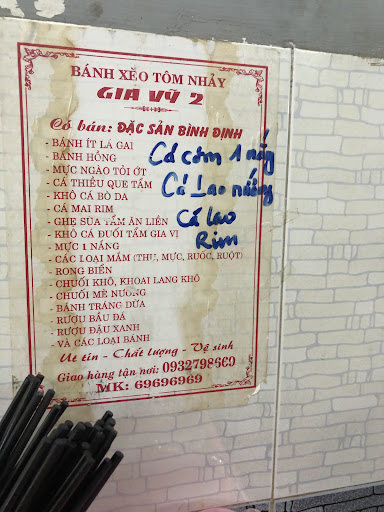 BÁNH XÈO TÔM NHẢY
GIA VỸ 2
Có bán: ĐẶC SẢN BÌNH ĐỊNH
- BÁNH ÍT LÁ GAI
- BÁNH HỒNG
- MỰC NGÀO TỎI ỚT
- CÁ THIỀU QUE TẨM
- KHÔ CÁ BÒ DA
- CÁ MAI RIM
- GHẸ SỮA TẨM ĂN LIỀN
- KHÔ CÁ ĐUỐI TẨM GIA VỊ
- MỰC 1 NẮNG
- CÁC LOẠI MẮM (THU, MỰC, RUỐC, RUỘT)
- RONG BIỂN
- CHUỐI KHÔ, KHOAI LANG KHÔ
- CHUỐI MÈ NƯỚNG
- BÁNH TRÁNG DỪA
- RƯỢU BẦU ĐÁ
- RƯỢU ĐẬU XANH
- VÀ CÁC LOẠI BÁNH
Cá cơm 1 nắng
Cá Lao nắng
Cá lao
Rim
Uy tín - Chất lượng - Vệ sinh
Giao hàng tận nơi: 0932798660
MK: 69696969